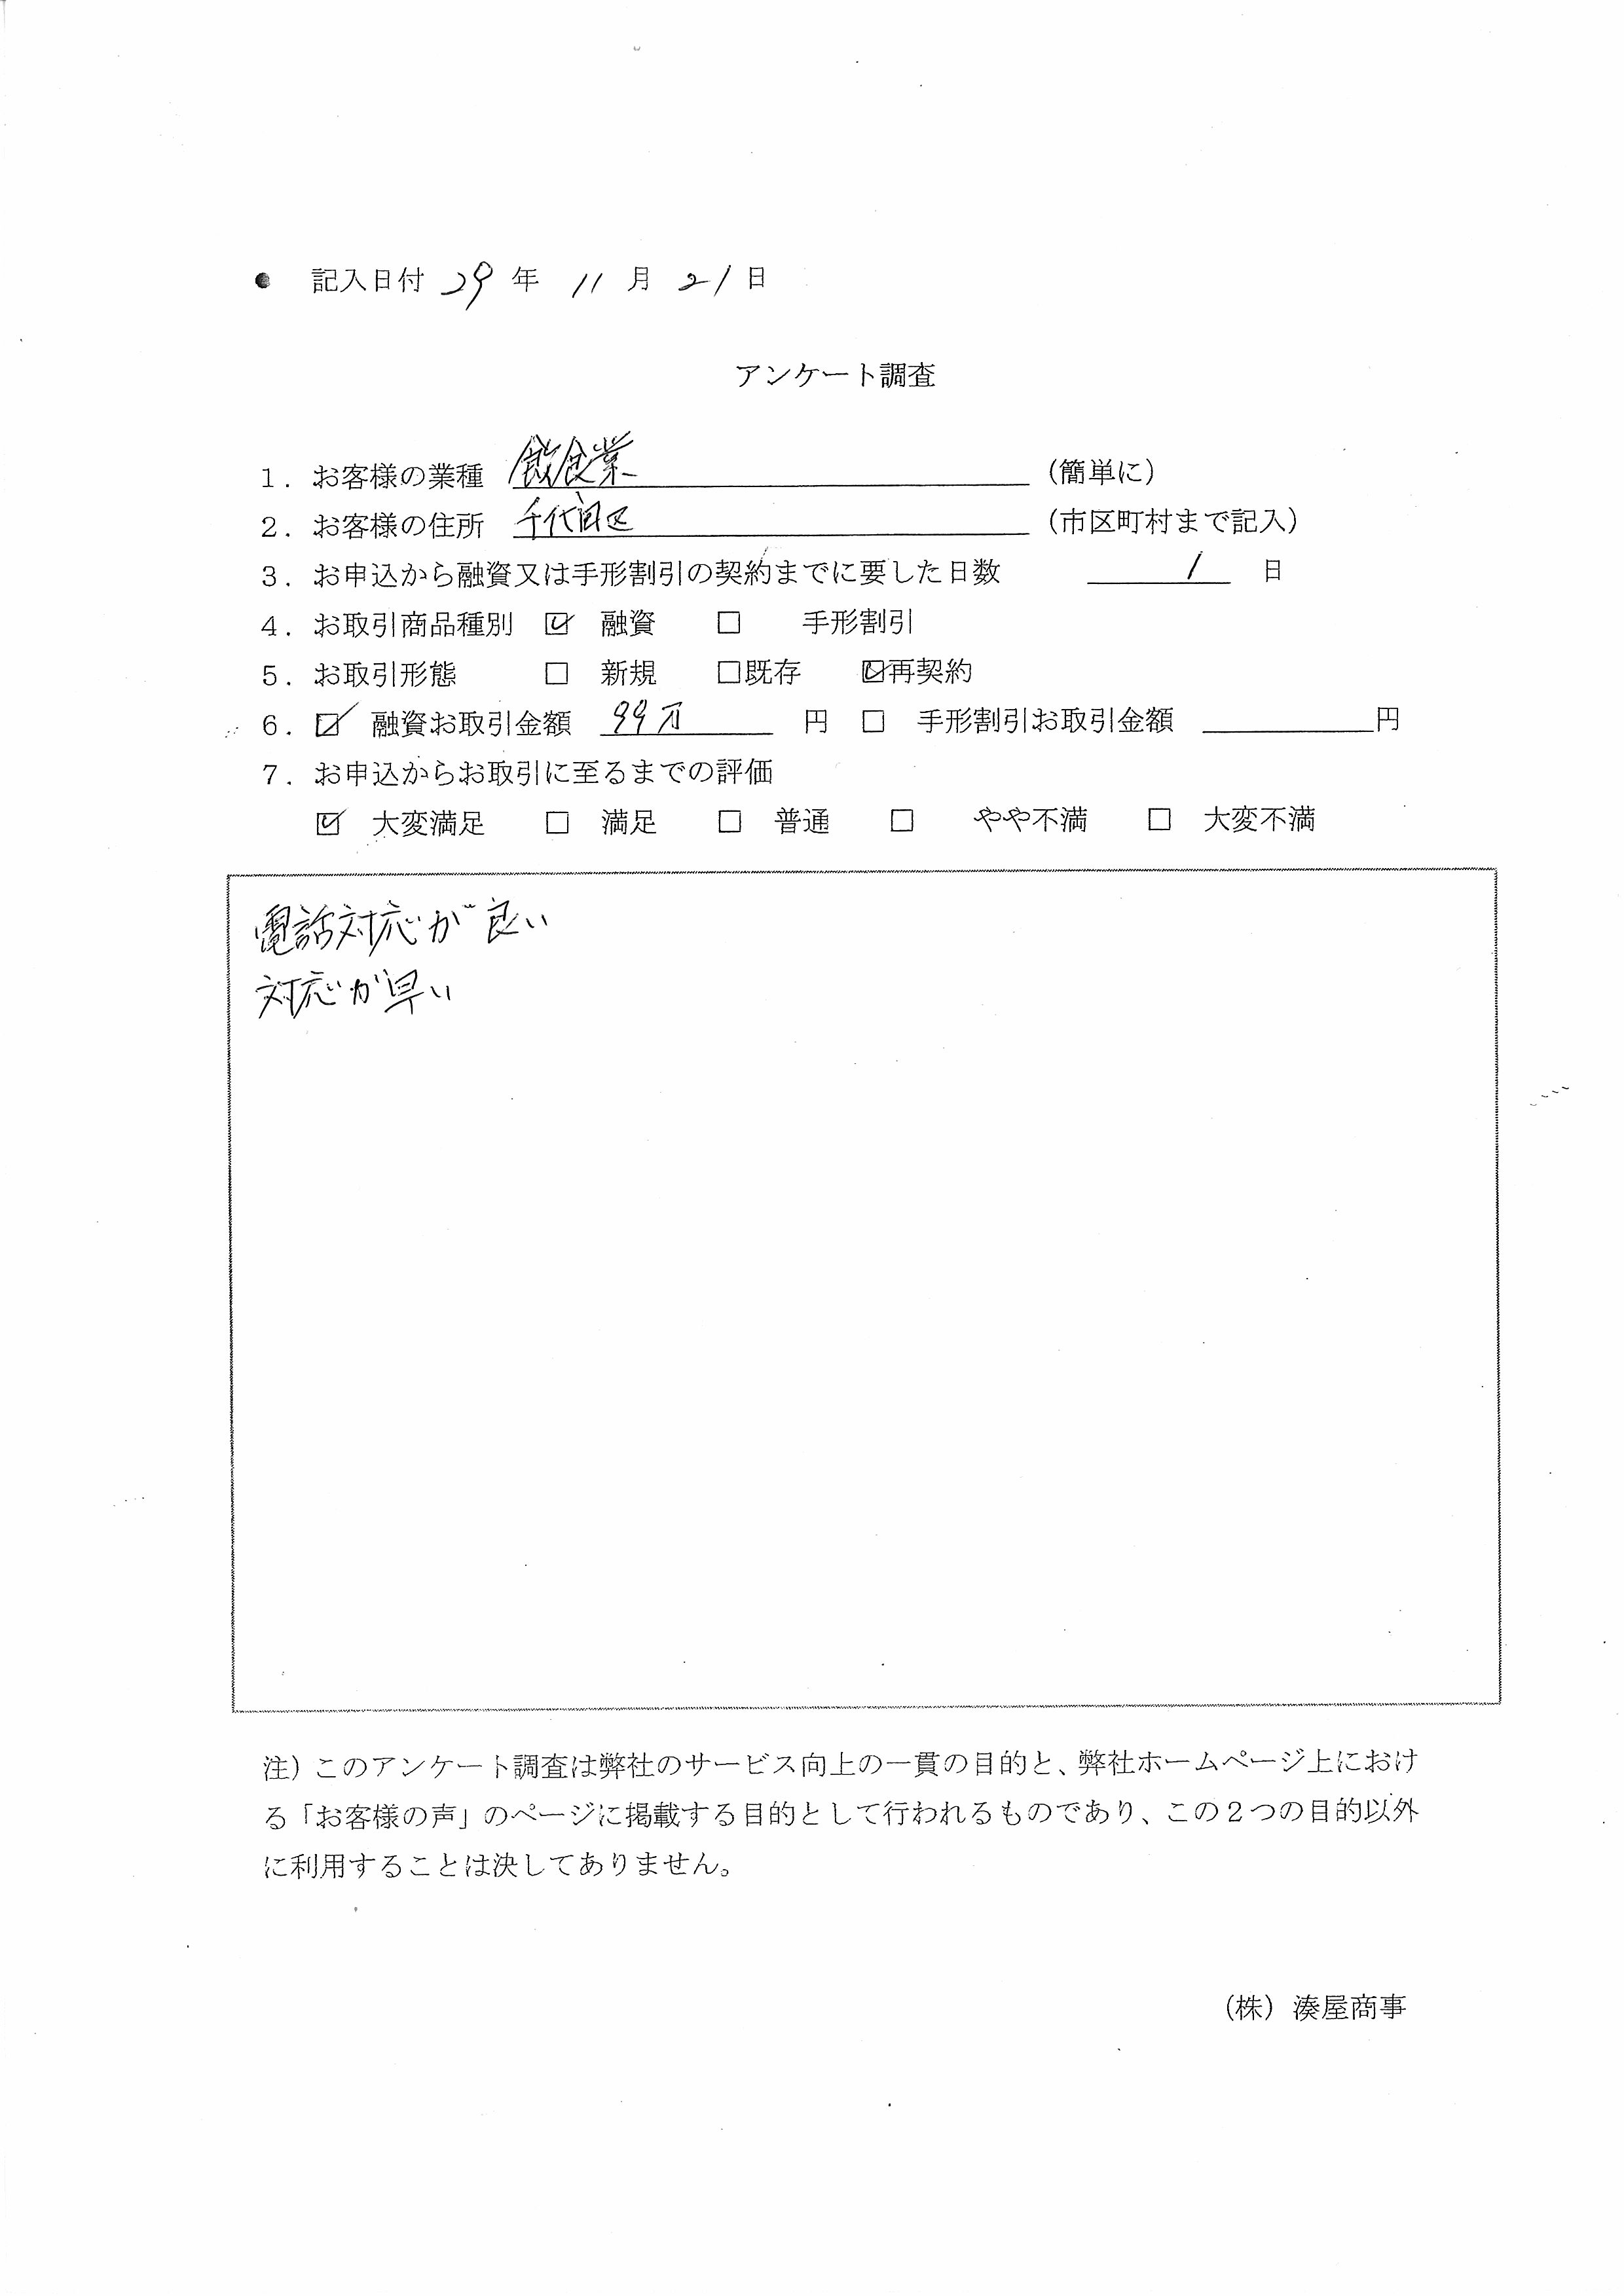 ● 記入日付 29 年 11 月 21 日
アンケート調査
1．お客様の業種 飲食業 （簡単に）
2．お客様の住所 千代田区 （市区町村まで記入）
3．お申込から融資又は手形割引の契約までに要した日数 1 日
4．お取引商品種別 ☑ 融資 □ 手形割引
5．お取引形態 □ 新規 □既存 ☑再契約
6．☑ 融資お取引金額 99万 円 □ 手形割引お取引金額 円
7．お申込からお取引に至るまでの評価
☑ 大変満足 □ 満足 □ 普通 □ やや不満 □ 大変不満
電話対応が良い
対応が早い
注）このアンケート調査は弊社のサービス向上の一貫の目的と、弊社ホームページ上におけ
る「お客様の声」のページに掲載する目的として行われるものであり、この２つの目的以外
に利用することは決してありません。
（株）湊屋商事